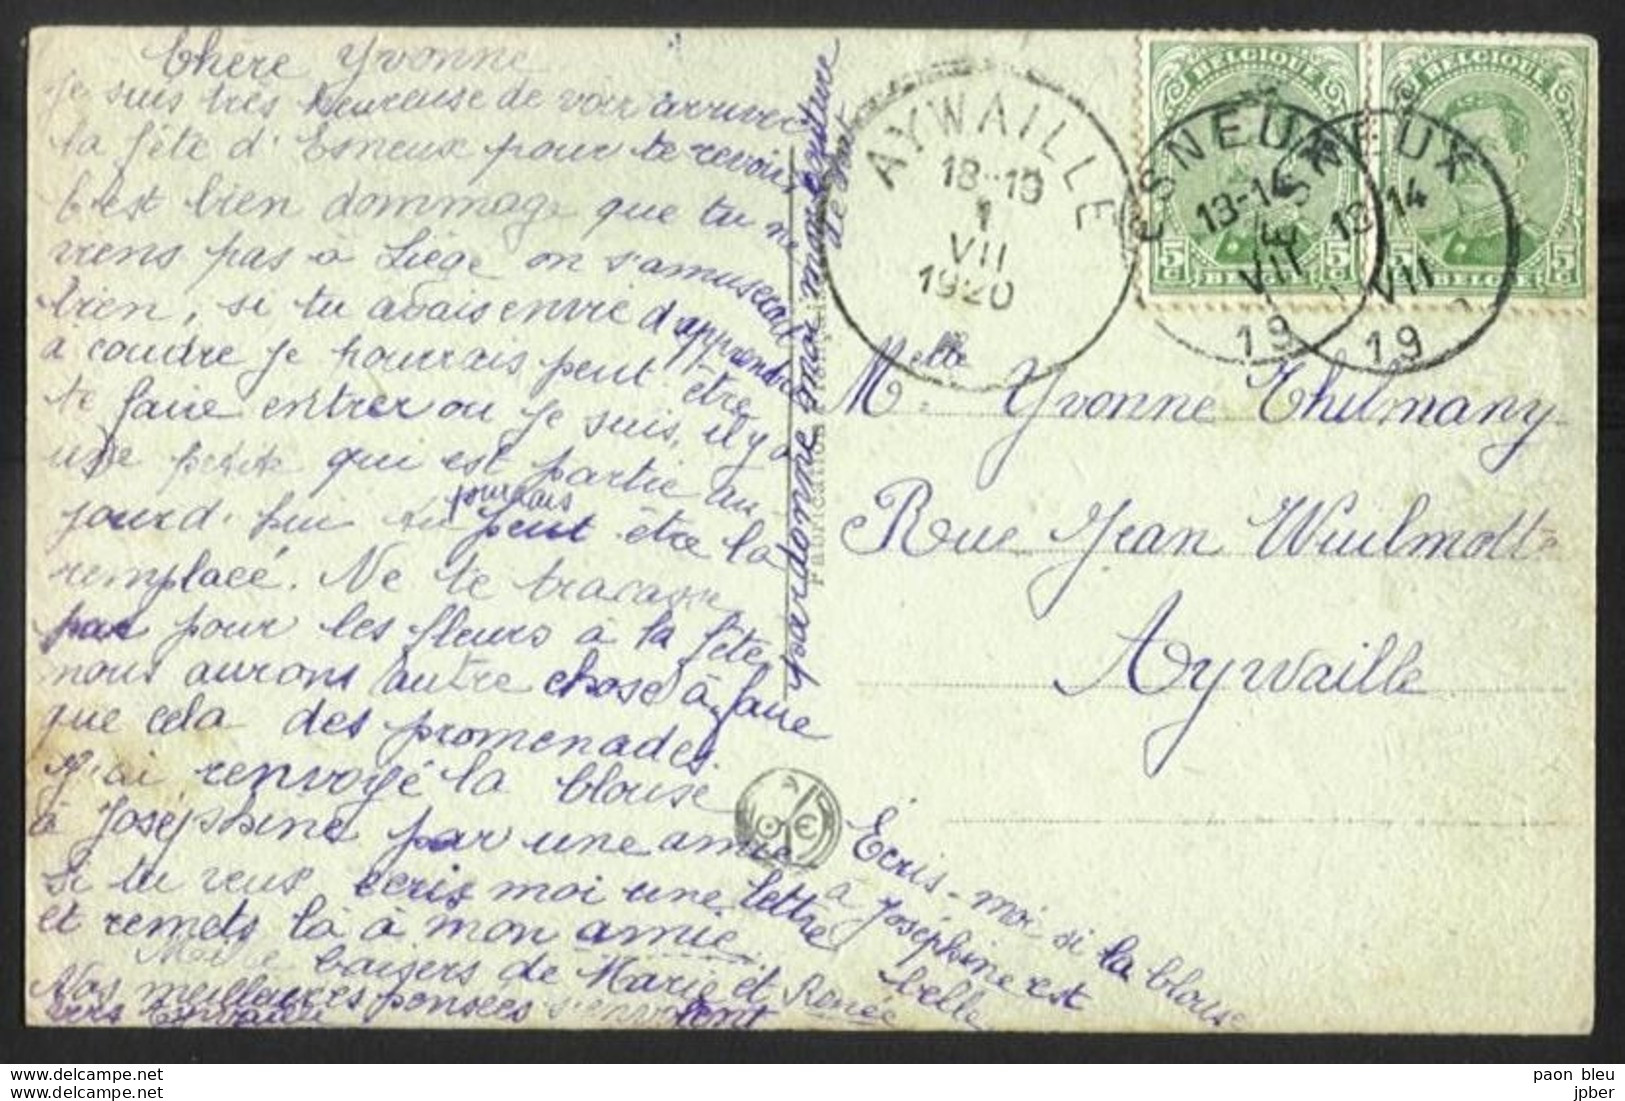 Chère Yvonne
Je suis très heureuse de voir arriver
la fête d'Esneux pour te revoir
C'est bien dommage que tu ne
viens pas à Liége on s'amuserait
bien, si tu avais envie d'apprendre
à coudre je pourrais peut être
te faire entrer ou je suis, il y a
une petite qui est partie au-
jourd'hui tu pourrais peut être la
remplacé. Ne te tracasse
pas pour les fleurs à la fête
nous aurons autre chose à faire
que cela des promenades.
J'ai renvoyé la blouse
à Joséphine par une amie
Si tu veux ecris moi une lettre
et remets là à mon amie.
Mille baisers de Marie et Renée
Nos meilleures pensées s'envolent
vers Aywaille
pardonne moi mon écriture
de chat
Ecris-moi si la blouse
à Joséphine est
belle
AYWAILLE
18-19
1
VII
1920
BELGIQUE
5c
BELGIË
5c
BELGIQUE
5c
BELGIË
5c
ESNEUX
13-14
VII
19
ESNEUX
13-14
VII
19
Melle Yvonne Thelmany
Rue Jean Wuilmotte
Aywaille
paon bleu
www.delcampe.net
jpber